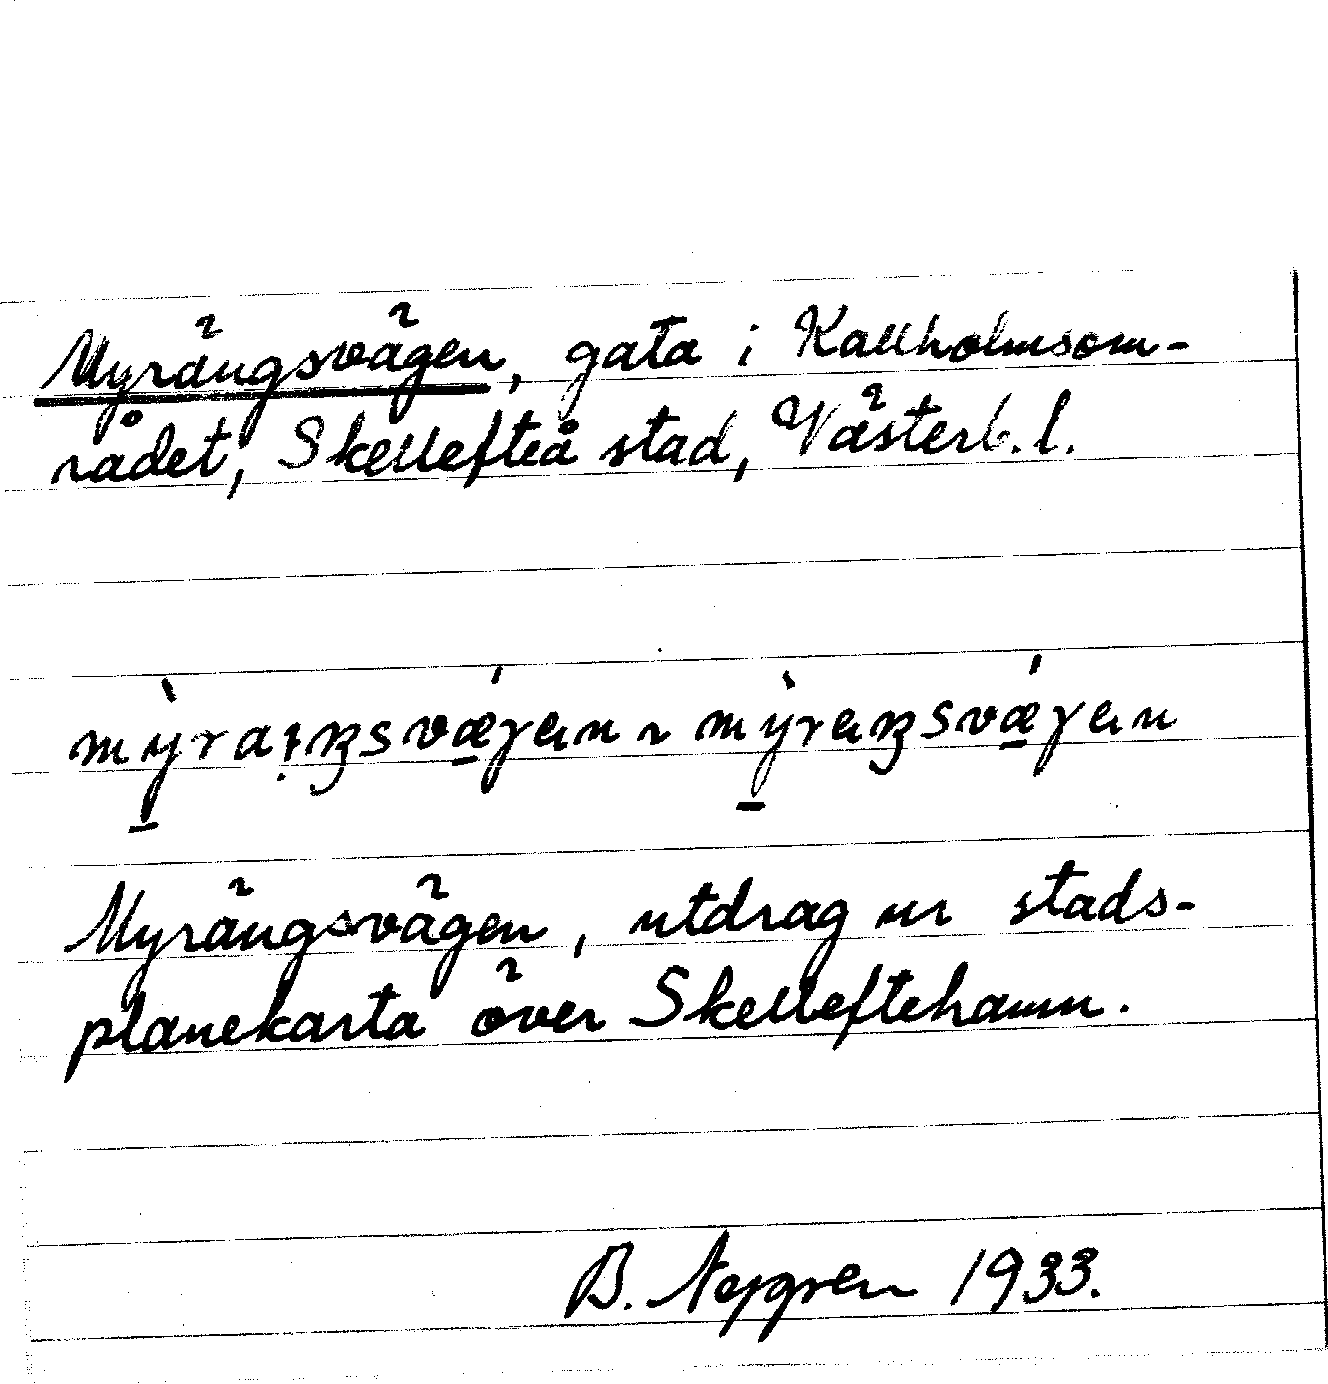 Myrängsvägen, gata i Kallholmsom-
rådet, Skellefteå stad, Västerb. l.
Myrängsvägen, utdrag ur stads-
planekarta över Skelleftehamn.
B. 1933.